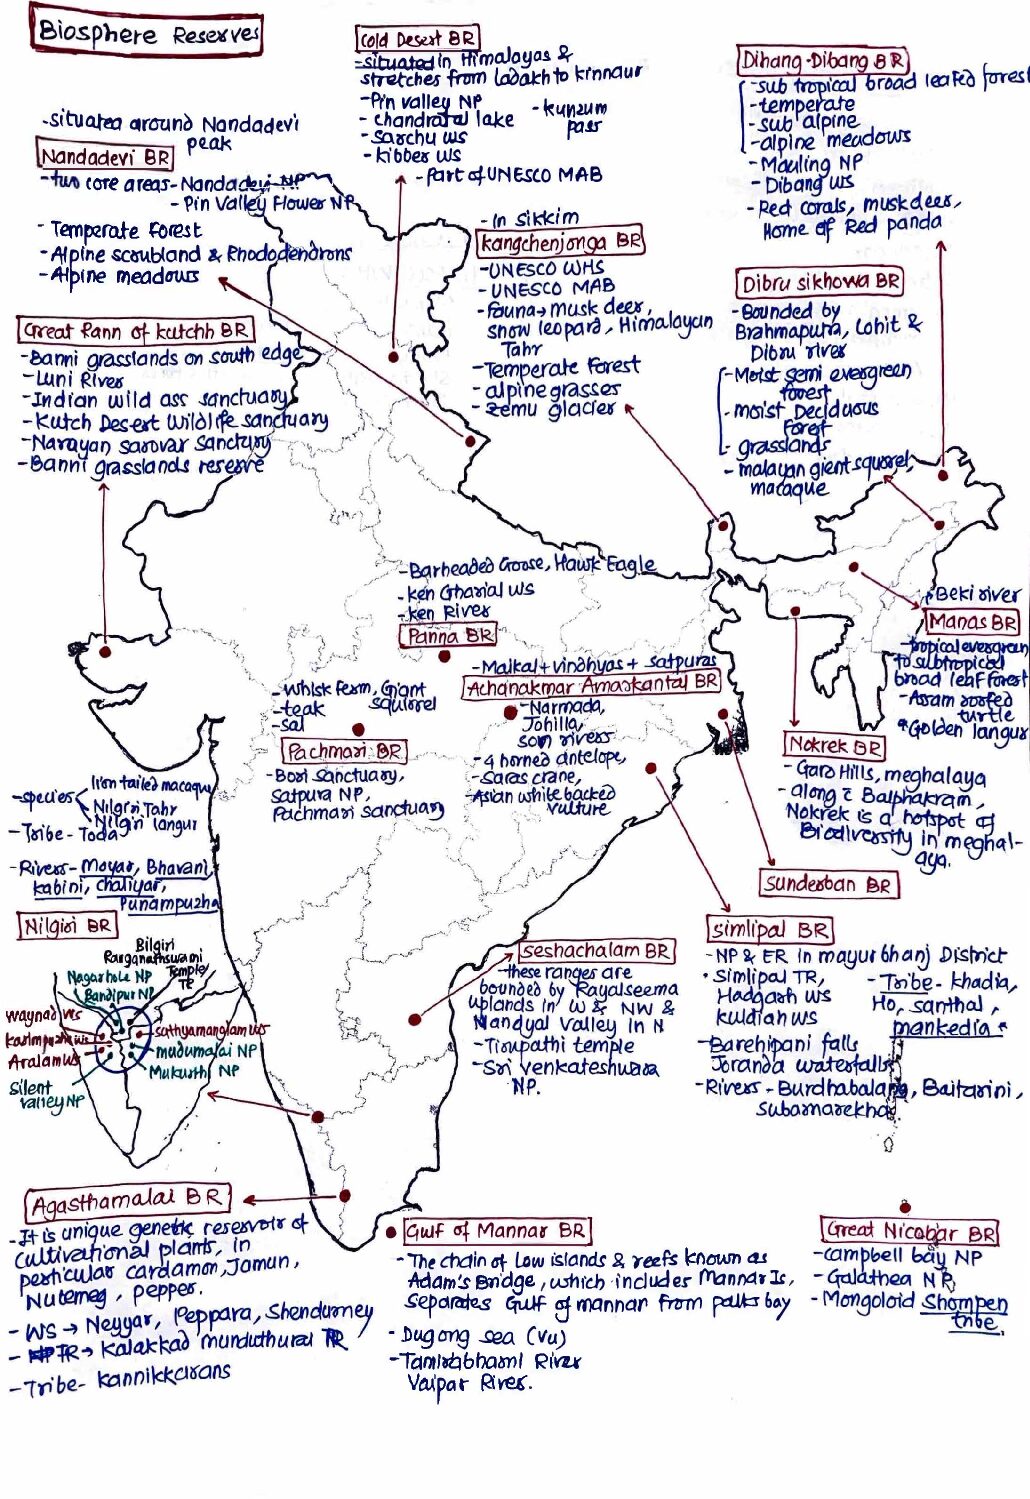 Biosphere Reserves
Cold Desert BR
-situated in Himalayas &
stretches from ladakh to kinnaur
-Pin valley NP
- chandratal lake
-sarchu ws
-kibber ws
-kunzum
pass
-part of UNESCO MAB
Dihang-Dibang BR
-sub tropical broad leafed forest
-temperate
-sub alpine
-alpine meadows
-Mauling NP
-Dibang ws
-Red corals, muskdeer,
Home of Red panda
-situated around Nandadevi
peak
Nandadevi BR
-two core areas-Nandadevi NP
-Pin Valley Flower NP
- Temperate Forest
-Alpine scrubland & Rhododendrons
-Alpine meadows
-In sikkim
kangchenjonga BR
-UNESCO WHS
-UNESCO MAB
-fauna→musk deer,
snow leopard, Himalayan
Tahr
-Temperate Forest
-alpine grasses
-zemu glacier
Dibru sikhowa BR
-Bounded by
Brahmaputra, Lohit &
Dibru river
-Moist semi evergreen
forest
-moist Deciduous
Forest
- grasslands
-malayan gient squorel,
macaque
Great Rann of kutchh BR
-Banni grasslands on south edge
-Luni River
-Indian wild ass sanctuary
-Kutch Desert Wildlife sanctuary
-Narayan sarovar Sanctury
-Banni grasslands reserve
-Barheaded Goose, Hawk Eagle
-ken Gharial ws
-ken River
Panna BR
↑Beki river
Manas BR
-tropical evergreen
to subtropical
broad leaf Forest
-Assam roofed
turtle
*Golden langur
-Maikal+vindhyas+satpuras
Achanakmar Amarkantal BR
-Narmada,
Johilla,
son rivers
-4 horned antelope,
-saras crane,
-Asian white backed
vulture
-Whisk ferm, Giant
squirrel
-teak
-sal
Pachmari BR
-Bori sanctuary,
Satpura NP,
Pachmari sanctuary
Nokrek BR
-Garo Hills, meghalaya
-along c̄ Balphakram,
Nokrek is a hotspot of
Biodiversity in meghal-
aya.
-species
lion tailed macaque
Nilgiri Tahr
Nilgiri langur
-Tribe-Toda
-Rivers-Moyar, Bhavani,
kabini, chaliyar,
Punampuzha
Nilgiri BR
Sunderban BR
Simlipal BR
-NP & ER in mayurbhanj District
•Simlipal TR,
Hadgarh ws
kuldiah ws
-Tribe- khadia,
Ho, santhal,
mankedia*
-Barehipani falls
Joranda waterfalls
-Rivers-Burdhabalang, Baitarini,
subarnarekha
seshachalam BR
-these ranges are
bounded by Rayalseema
uplands in W & NW &
Nandyal Valley in N
-Tirupathi temple
-Sri venkateshwara
NP.
Biligiri
Ranganathswami
Temple
TR
Nagarhole NP
Bandipur NP
waynad ws
karimpuzha ws
Aralam ws
Silent
valley NP
sathyamanglam ws
mudumalai NP
Mukurthi NP
Agasthamalai BR
-It is unique genetic reservoir of
cultivational plants, in
perticular cardamon, Jamun,
Nutemeg, pepper.
- WS → Neyyar, Peppara, Shendurney
- TR→ Kalakkad munduthurai TR
-Tribe- kannikkarans
Gulf of Mannar BR
-The chain of Low islands & reefs known as
Adam's Bridge, which includes Mannar Is,
separates Gulf of mannar from palks bay
-Dugong sea (vu)
-Tamirabharni River
Vaipar River.
Great Nicobar BR
-campbell bay NP
-Galathea NP,
-Mongoloid Shompen
tribe.